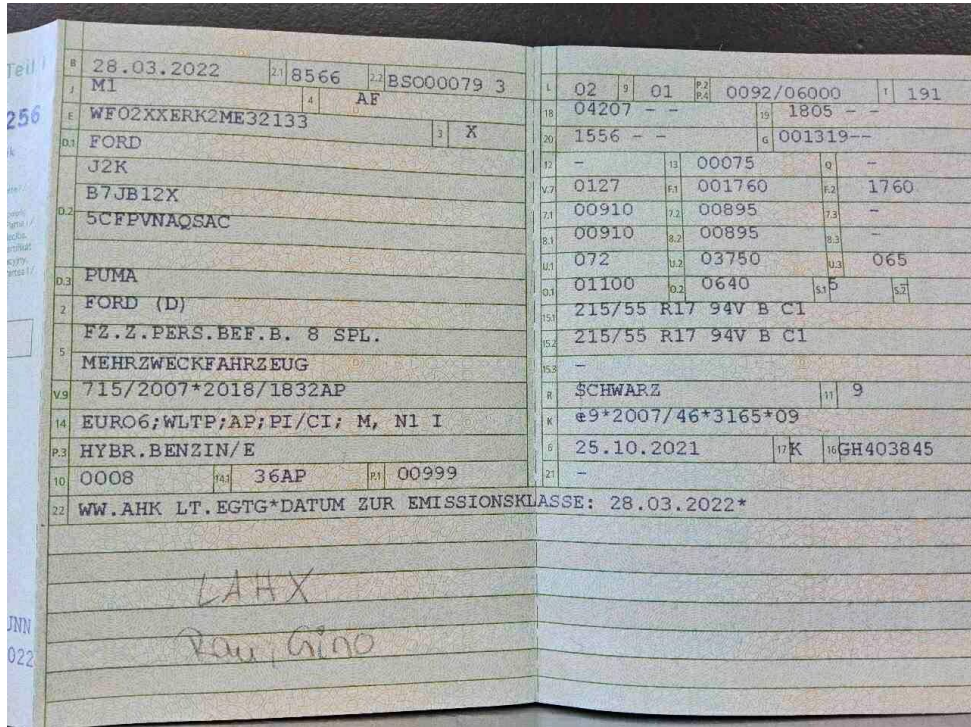 Teil I
256
B 28.03.2022 2.1 8566 2.2 BSO00079 3
J M1 4 AF
E WF02XXERK2ME32133 3 X
D.1 FORD
J2K
B7JB12X
D.2 5CFPVNAQSAC
D.3 PUMA
2 FORD (D)
FZ.Z.PERS.BEF.B. 8 SPL.
5 MEHRZWECKFAHRZEUG
V.9 715/2007*2018/1832AP
14 EURO6;WLTP;AP;PI/CI; M, N1 I
P.3 HYBR.BENZIN/E
10 0008 14.1 36AP P.1 00999
22 WW.AHK LT.EGTG*DATUM ZUR EMISSIONSKLASSE: 28.03.2022*
LAHX
Rau, Gino
UNN
022
L 02 9 01 P.2 P.4 0092/06000 T 191
18 04207 - - 19 1805 - -
20 1556 - - G 001319--
12 - 13 00075 Q -
V.7 0127 F.1 001760 F.2 1760
7.1 00910 7.2 00895 7.3 -
8.1 00910 8.2 00895 8.3 -
U.1 072 U.2 03750 U.3 065
O.1 01100 O.2 0640 S.1 5 S.2
15.1 215/55 R17 94V B C1
15.2 215/55 R17 94V B C1
15.3 -
R SCHWARZ 11 9
K e9*2007/46*3165*09
6 25.10.2021 17 K 16 GH403845
21 -